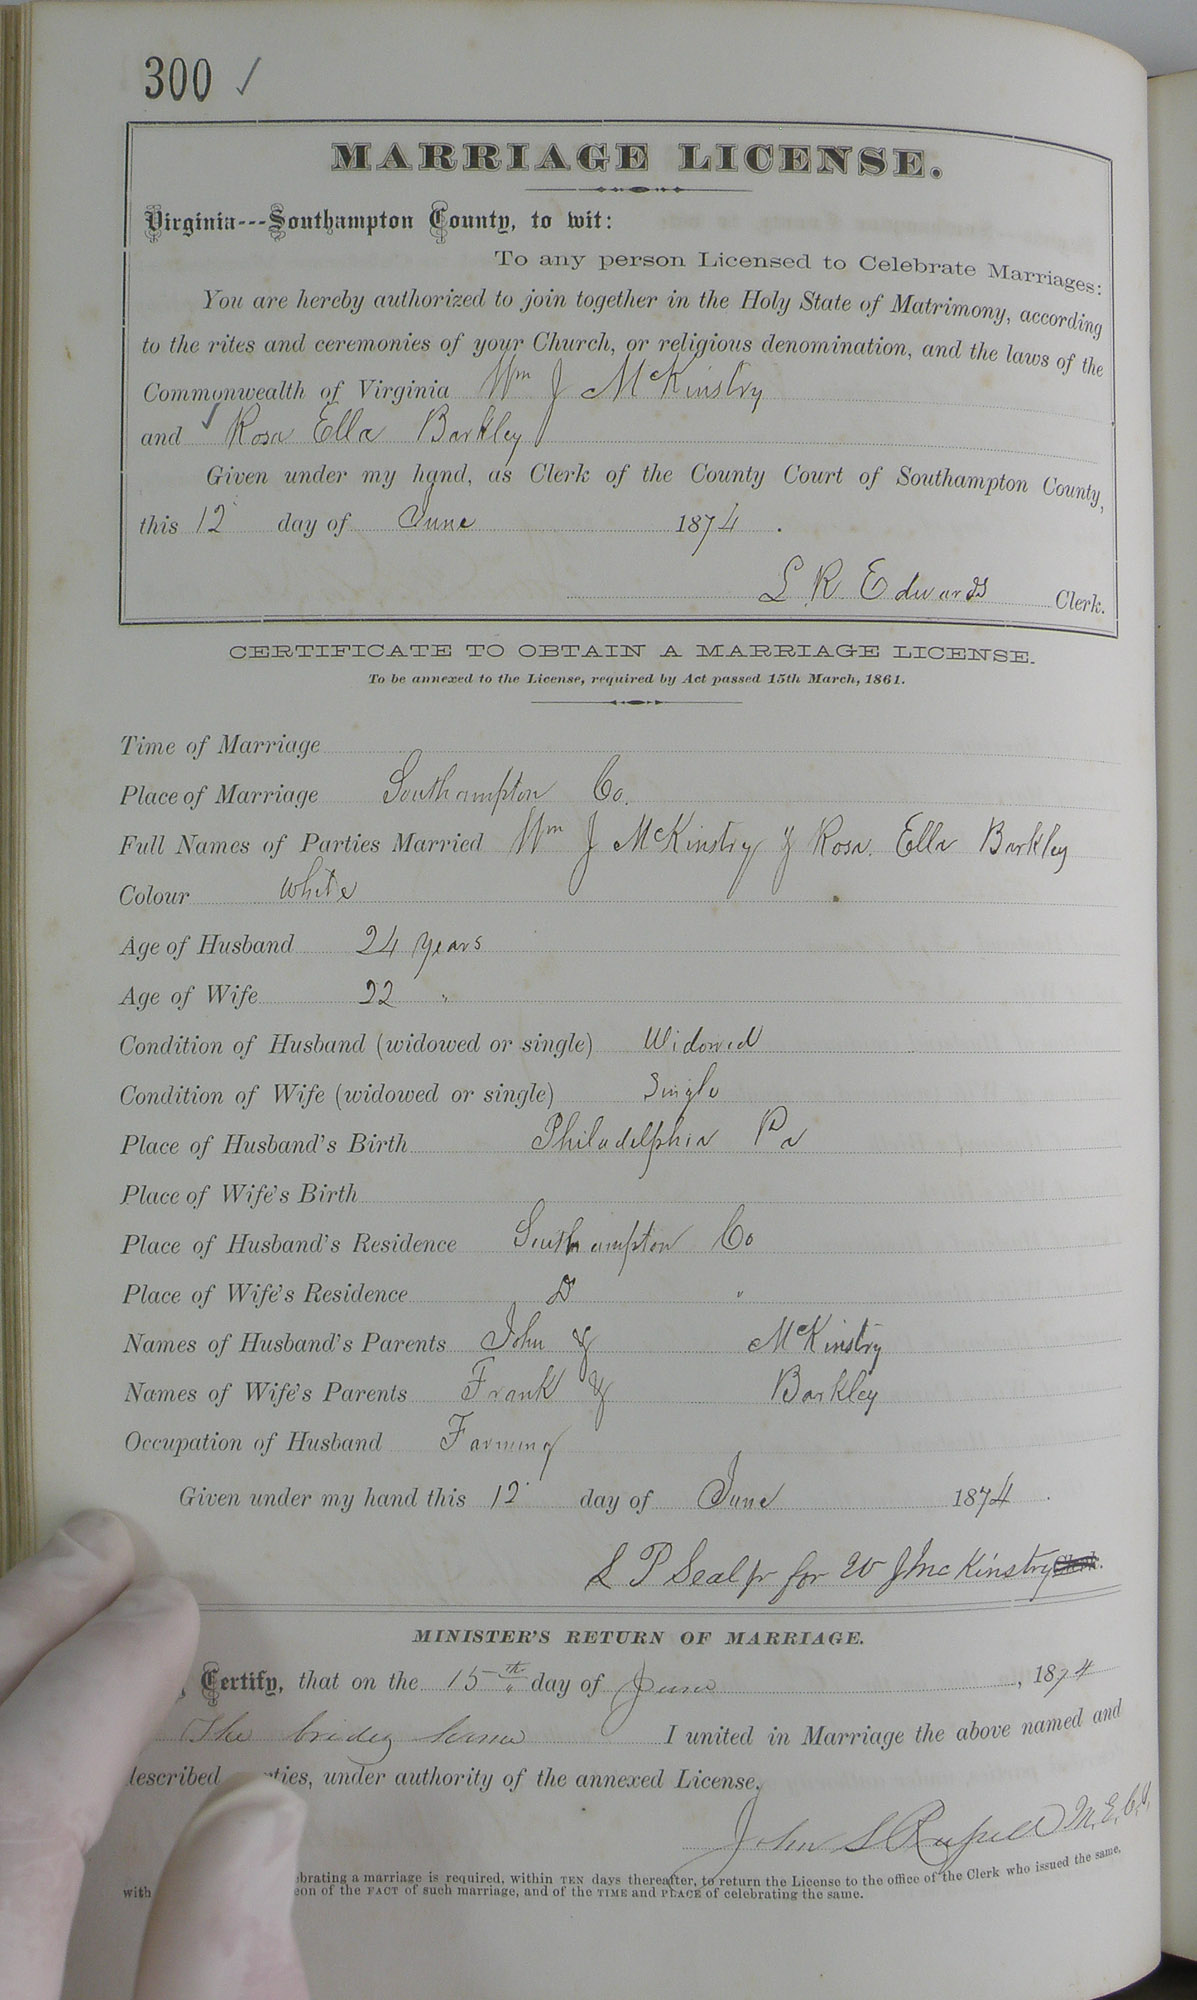 300 ✓
MARRIAGE LICENSE.
Virginia---Southampton County, to wit:
To any person Licensed to Celebrate Marriages:
You are hereby authorized to join together in the Holy State of Matrimony, according
to the rites and ceremonies of your Church, or religious denomination, and the laws of the
Commonwealth of Virginia Wm J McKinstry
and ✓ Rosa Ella Barkley
Given under my hand, as Clerk of the County Court of Southampton County,
this 12 day of June 1874.
L R Edwards Clerk.
CERTIFICATE TO OBTAIN A MARRIAGE LICENSE.
To be annexed to the License, required by Act passed 15th March, 1861.
Time of Marriage
Place of Marriage Southampton Co.
Full Names of Parties Married Wm J McKinstry & Rosa Ella Barkley
Colour White
Age of Husband 24 years
Age of Wife 22 "
Condition of Husband (widowed or single) Widowed
Condition of Wife (widowed or single) Single
Place of Husband's Birth Philadelphia Pa
Place of Wife's Birth
Place of Husband's Residence Southampton Co
Place of Wife's Residence Do "
Names of Husband's Parents John & McKinstry
Names of Wife's Parents Frank & Barkley
Occupation of Husband Farming
Given under my hand this 12 day of June 1874.
L P Seal jr for W J McKinstry
MINISTER'S RETURN OF MARRIAGE.
Certify, that on the 15th day of June, 1874
The brides home I united in Marriage the above named and
described parties, under authority of the annexed License.
John S M. E. Ch.
brating a marriage is required, within TEN days thereafter, to return the License to the office of the Clerk who issued the same,
with eon of the FACT of such marriage, and of the TIME and PLACE of celebrating the same.